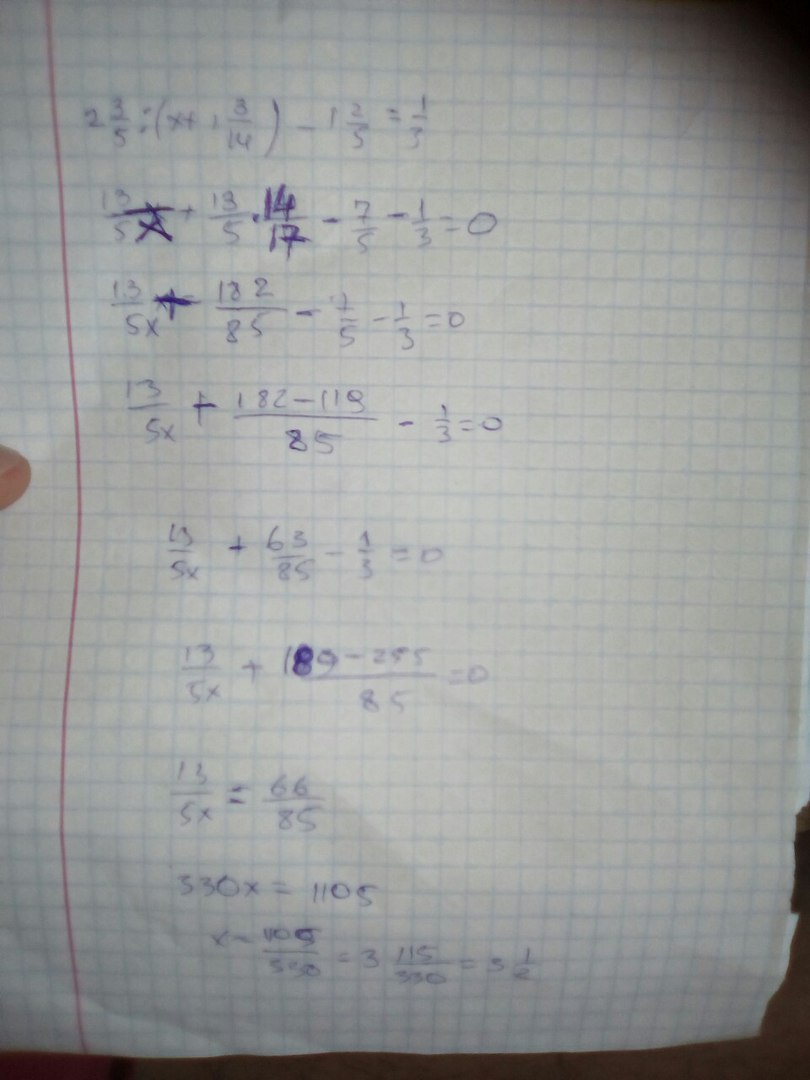 2 3/5 : (x + 1 3/14) - 1 2/5 = 1/3
13/5x + 13/5 · 14/17 - 7/5 - 1/3 = 0
13/5x + 182/85 - 7/5 - 1/3 = 0
13/5x + (182-119)/85 - 1/3 = 0
13/5x + 63/85 - 1/3 = 0
13/5x + (189-255)/85 = 0
13/5x = 66/85
330x = 1105
x = 1105/330 = 3 115/330 = 3 1/2